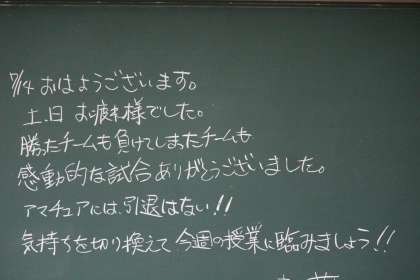 7/14 おはようございます。
土.日 お疲れ様でした。
勝ったチームも負けてしまったチームも
感動的な試合ありがとうございました。
アマチュアには、引退はない!!
気持ちを切り換えて今週の授業に臨みましょう!!